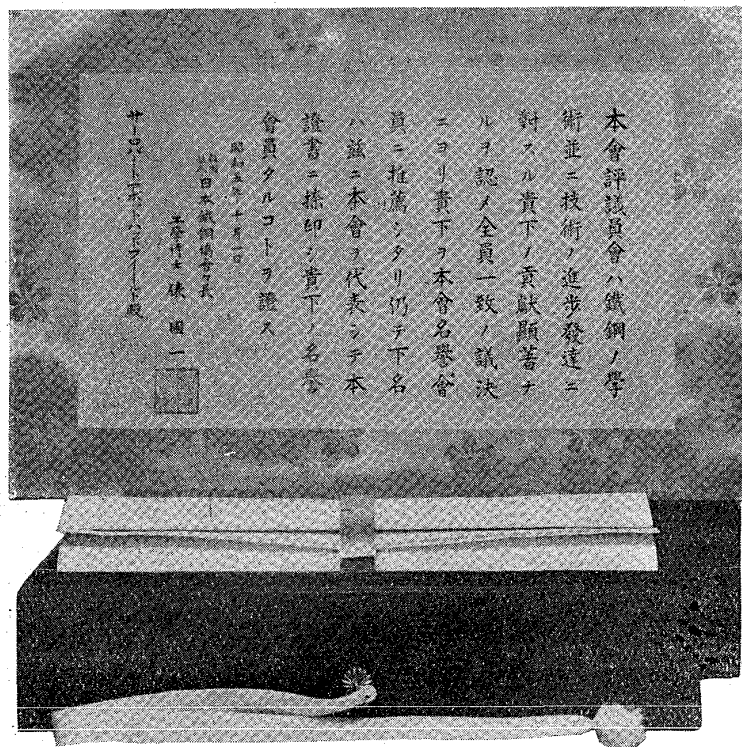 本會評議員會ハ鐵鋼ノ學
術並ニ技術ノ進歩發達ニ
對スル貴下ノ貢獻顯著ナ
ルヲ認メ全員一致ノ議決
ニヨリ貴下ヲ本會名譽會
員ニ推薦シタリ仍テ下名
ハ茲ニ本會ヲ代表シテ本
證書ニ捺印シ貴下ノ名譽
會員タルコトヲ證ス
昭和五年十月一日
社團法人 日本鐵鋼協會會長
工學博士 俵 國一
サー・ロバート・アボット・ハドフィールド殿